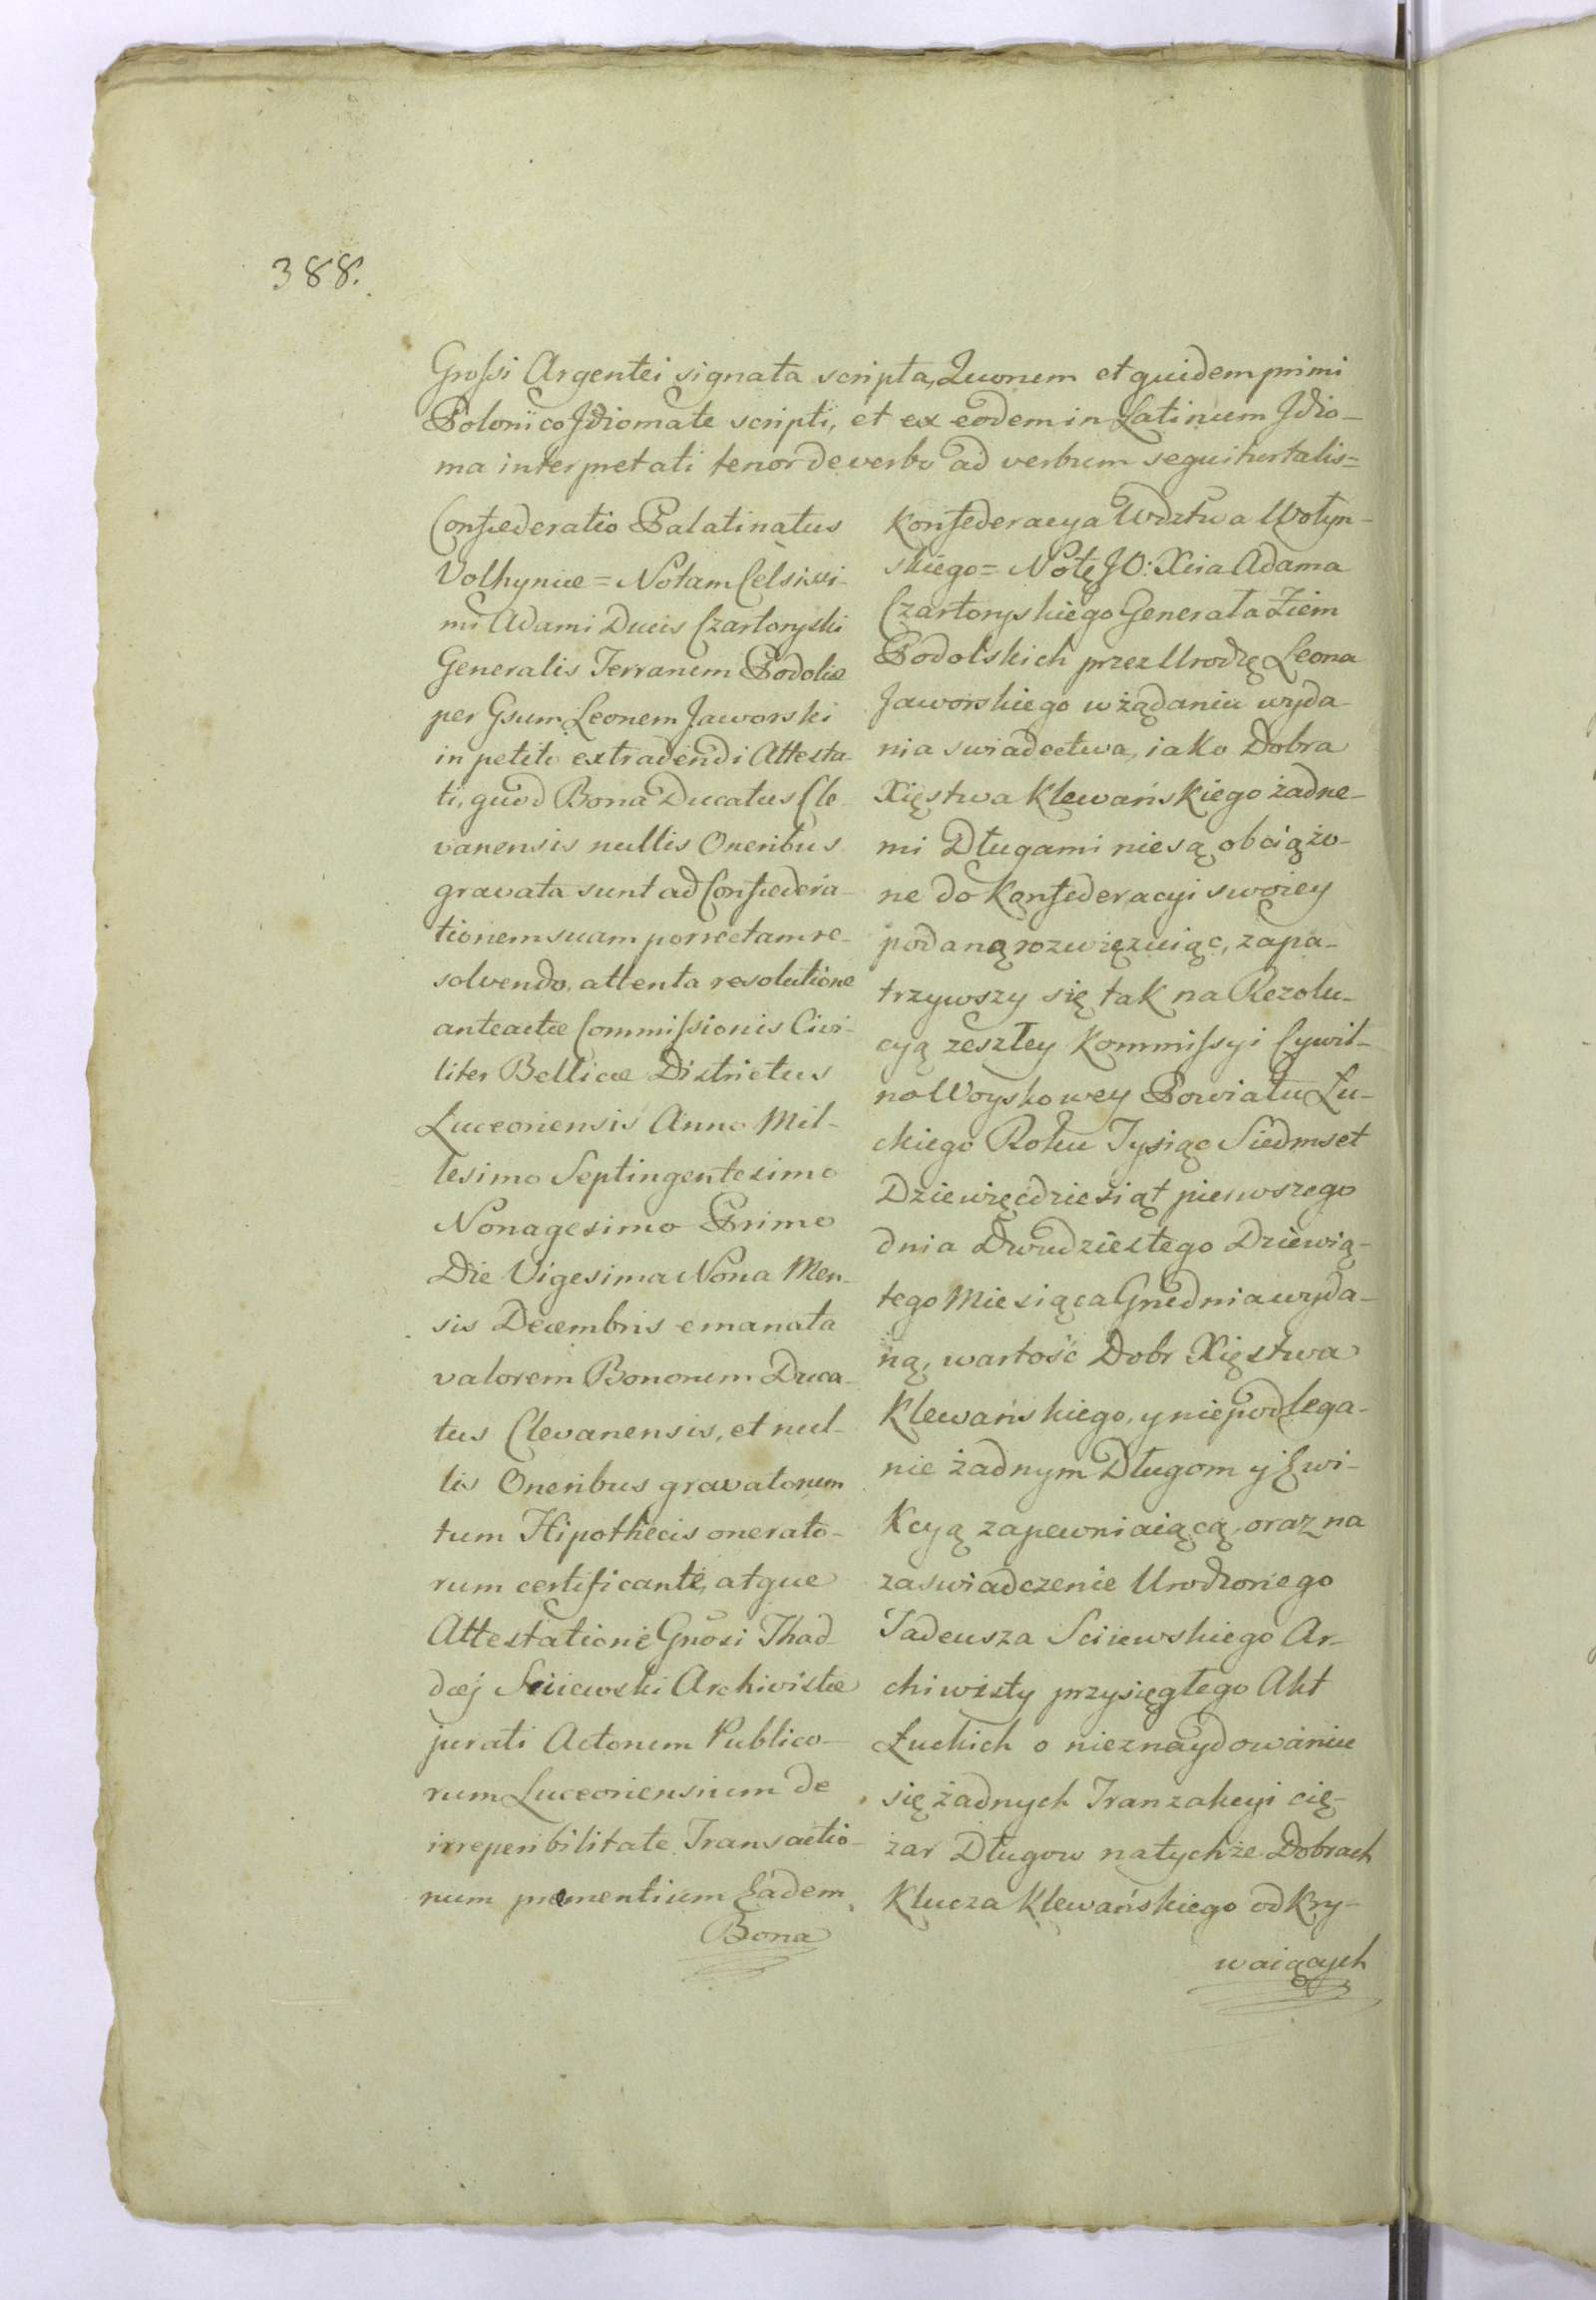 388.
Grossi Argentei signata scripta, Quorum et quidem primi
Polonico Jdiomate scripti, et ex eodem in Latinum Jdio-
ma interpretati tenor de verbo ad verbum sequitur talis =
Confœderatio Palatinatus
Volhyniæ = Notam Celsissi-
mi Adami Ducis Czartoryski
Generalis Terrarum Podoliæ
per Gsum Leonem Jaworski
in petito extradendi Attesta-
ti, quod Bona Ducatus Cle-
vanensis nullis Oneribus
gravata sunt ad Confœdera-
tionem suam porrectam re-
solvendo, attenta resolutione
anteactæ Commissionis Civi-
liter Bellicæ Districtus
Luceoriensis Anno Mil-
lesimo Septingentesimo
Nonagesimo Primo
Die Vigesima Nona Men-
sis Decembris emanata
valorem Bonorum Duca-
tus Clevanensis, et nul-
lis Oneribus gravatorum
tum Hipothecis onerato-
rum certificante, atque
Attestatione Gnosi Thad-
dæj Sciiewski Archivistæ
jurati Actorum Publico-
rum Luceoriensium de
irreperibilitate Transactio-
num prementium Eadem
Bona
Konfederacya Wdztwa Wołyn-
skiego = Notę JO: Xcia Adama
Czartoryskiego Generała Ziem
Podolskich przez Urodzę Leona
Jaworskiego w żądaniu wyda-
nia swiadectwa, iako Dobra
Xięstwa Klewańskiego żadne-
mi Długami nie są obciążo-
ne do Konfederacyi swoiey
podaną rozwięzuiąc, zapa-
trzywszy się tak na Rezolu-
cyą zeszłey Kommissyi Cywil-
no Woyskowey Powiatu Łu-
ckiego Roku Tysiąc Siedmset
Dziewięćdziesiąt pierwszego
dnia Dwudziestego Dziewią-
tego Miesiąca Grudnia wyda-
ną, wartość Dobr Xięstwa
Klewańskiego, y niepodlega-
nie żadnym Długom y Ewi-
kcyą zapewniaiącą, oraz na
zaswiadczenie Urodzonego
Tadeusza Sciiewskiego Ar-
chiwisty przysięgłego Akt
Łuckich o nieznaydowaniu
się żadnych Tranzakcyi cię-
żar Długow na tychże Dobrach
Klucza Klewańskiego odkry-
waiących